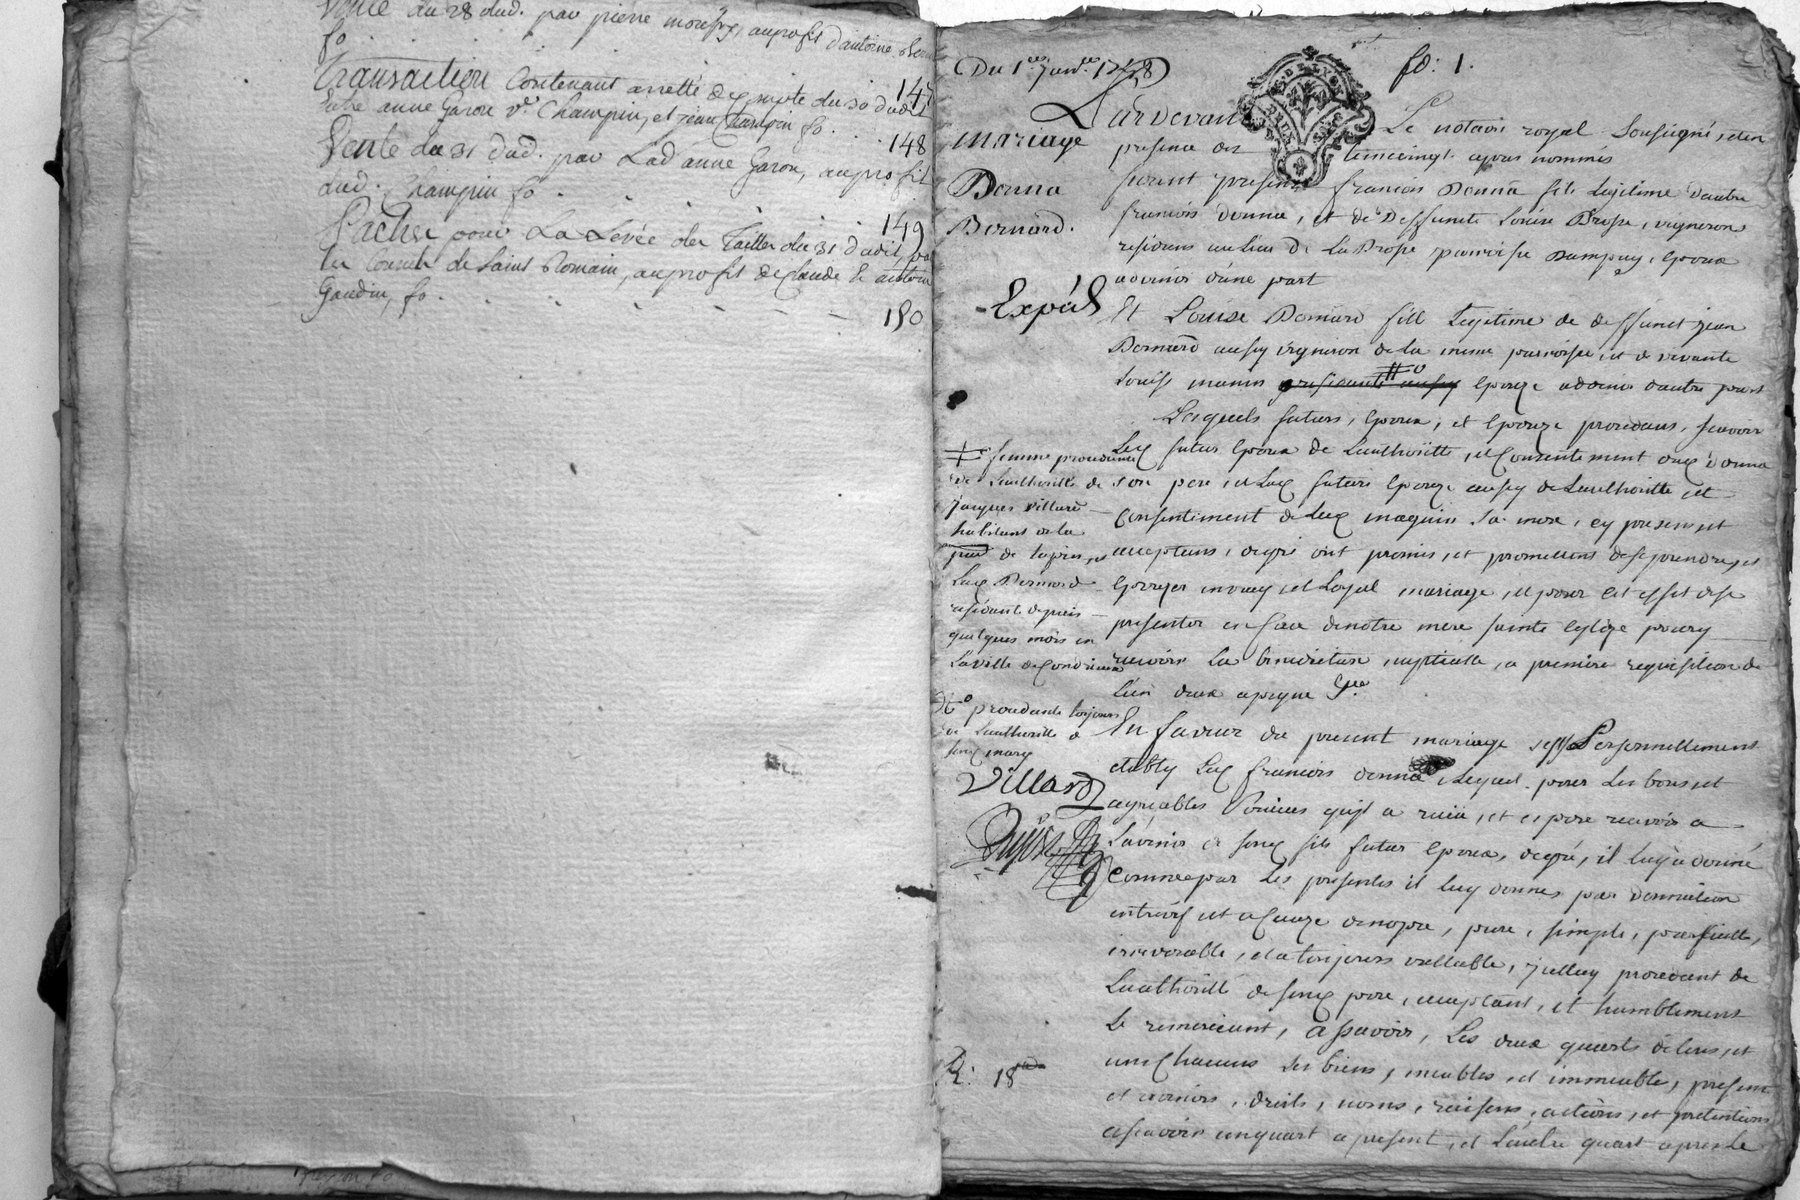 Vente du 28 dud. par pierre au profit d'antoine
fo
Transaction Contenant arretté de compte du 30 dudit
entre anne Garon ve Champin, et jean Champin fo. 147
Vente du 31 dud. par Lad. anne Garon, au profit 148
dud. Champin fo.
149
pour La Levée des Tailles du 31 dudit, par
les Consuls de Saint Romain, au profit de Claude & antoine
Gaudin, fo. 150
Du 1er Janv. 1748
fo: 1.
GN. DE LYON
DEUX SOLS
mariage
Donna
Bernard.
Expéd
Pardevant Le notaire royal Soussigné, et en
presence des temoings apres nommés
furent presens francois Donna fils Legitime d'autre
francois donna, et de Deffunte Louise Brosse, vignerons
residans au lieu de La Brosse parroisse d'ampuy, epoux
advenir d'une part
Et Louise Bernard fille Legitime de deffunct jean
Bernard aussy vigneron de la meme parroisse, et de vivante
Louise epouze advenir d'autre part
Lesquels futurs, epoux, et epouze procedans, scavoir
Led. futur epoux de L'authorité, et Consentement dud. donna
son pere, et Lad. future epouze aussy de L'authorité et
Consentement de Lad. maquin Sa mere, cy present et
acceptans, de gré ont promis, et promettent de se prendre, et
epouzer en vray, et Loyal mariage, et pour cet effet de se
presenter en face de notre mere sainte eglize pour y
recevoir La benediction nuptialle, a premiere requisition de
L'un deux a peyne &a
En faveur du present mariage s'est Personnellement
etably Led. francois donna Lequel pour Les bons, et
agreables Services qu'il a reçu, et espere recevoir a
L'avenir de sond. fils futur epoux, de gré, il luy a donné
comme par Les presentes il luy donne par donnation
entrevif et a Cauze de nopce, pure, simple, parfaitte,
irrevocable, et a toujours vallable, icelluy procedant de
L'authorité de sond. pere, acceptant, et humblement
Le remerciant, a scavoir, Les deux quarts de tous, et
un Chacuns Ses biens, meubles, et immeuble, present
et avenirs, droits, noms, raisons, actions, et pretentions
a scavoir un quart a present, et L'autre quart apres Le
femme procedante
de L'authorité de
jacques villard
habitans de la
de tupin, et
Lad. Bernard
residante depuis
quelques mois en
La ville de Condrieu
procedante toujours
de L'authorité de
sond. mary
Villard
R: 18